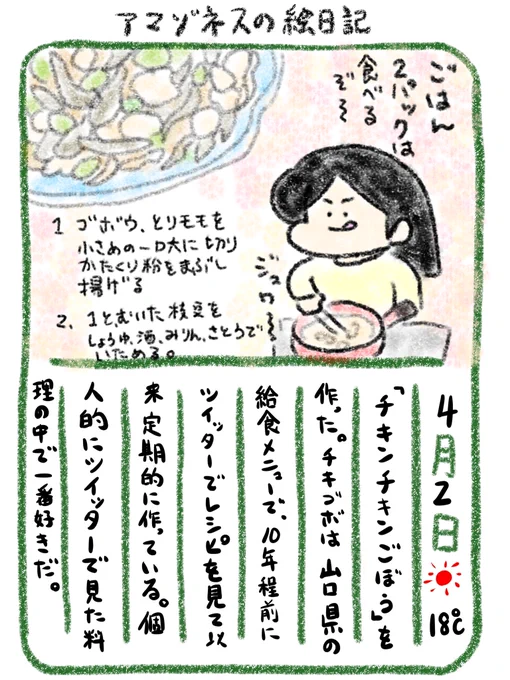 アマゾネスの絵日記
ごはん
2パックは
食べる
ぞぞ
ジュワ〜
1 ゴボウ、とりモモを
小さめの一口大に切り
かたくり粉をまぶし
揚げる
2. 1とむいた枝豆を
しょうゆ、酒、みりん、さとうで
いためる。
4月2日 18℃
「チキンチキンごぼう」を
作った。チキゴボは山口県の
給食メニューで、10年程前に
ツイッターでレシピを見て以
来定期的に作っている。個
人的にツイッターで見た料
理の中で一番好きだ。